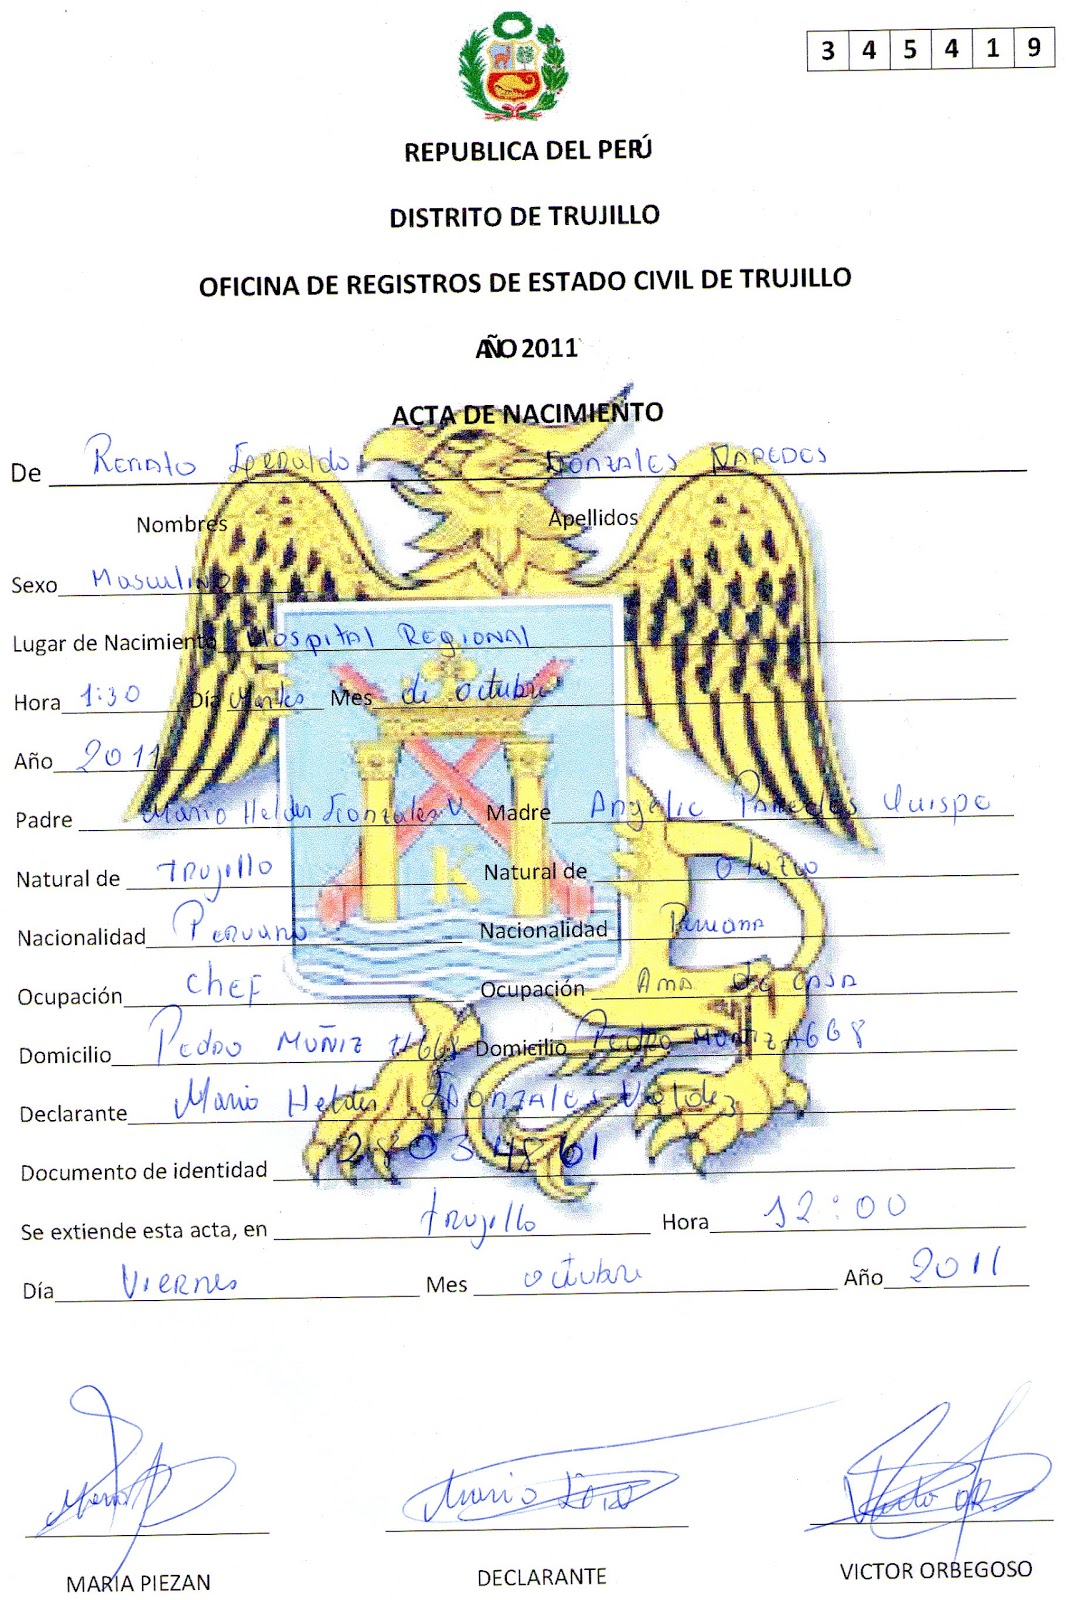 3 4 5 4 1 9
REPUBLICA DEL PERÚ
DISTRITO DE TRUJILLO
OFICINA DE REGISTROS DE ESTADO CIVIL DE TRUJILLO
AÑO 2011
ACTA DE NACIMIENTO
De Renato Geraldo Gonzales Paredes
Nombres Apellidos
Sexo Masculino
Lugar de Nacimiento Hospital Regional
Hora 1:30 Día Martes Mes de octubre
Año 2011
Padre Mario Helder Gonzales V Madre Angelic Paredes Quispe
Natural de Trujillo Natural de Otuzco
Nacionalidad Peruano Nacionalidad Peruana
Ocupación Chef Ocupación Ama de casa
Domicilio Pedro Muñiz #668 Domicilio Pedro Muñiz #668
Declarante Mario Helder Gonzales Valdez
Documento de identidad 28034861
Se extiende esta acta, en Trujillo Hora 12:00
Día Viernes Mes octubre Año 2011
Mario
MARIA PIEZAN DECLARANTE VICTOR ORBEGOSO